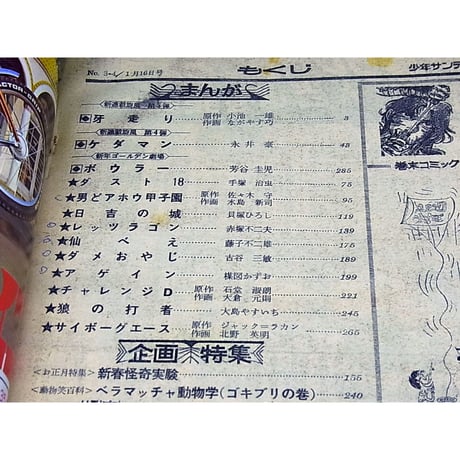 No. 3・4/1月16日号
もくじ
少年サンデ
まんが
新連載旋風 第3弾
牙走り 原作 小池一雄 作画 ながやす巧 3
新連載旋風 第4弾
ケダマン 永井豪 48
新年ゴールデン劇場
ボウラー 芳谷圭児 285
★ダスト18 手塚治虫 75
★男どアホウ甲子園 原作 佐々木守 作画 水島新司 95
★日吉の城 貝塚ひろし 119
★レッツラゴン 赤塚不二夫 139
★仙べえ 藤子不二雄 175
★ダメおやじ 古谷三敏 189
★アゲイン 楳図かずお 199
★チャレンジD 原作 石堂淑朗 作画 大倉元則 221
★狼の打者 大島やすいち 245
★サイボーグエース 原作 ジャック=ラカン 作画 北野英明 265
企画★特集
<お正月特集> 新春怪奇実験 155
<動物笑百科> ベラマッチャ動物学(ゴキブリの巻) 240
巻末コミック